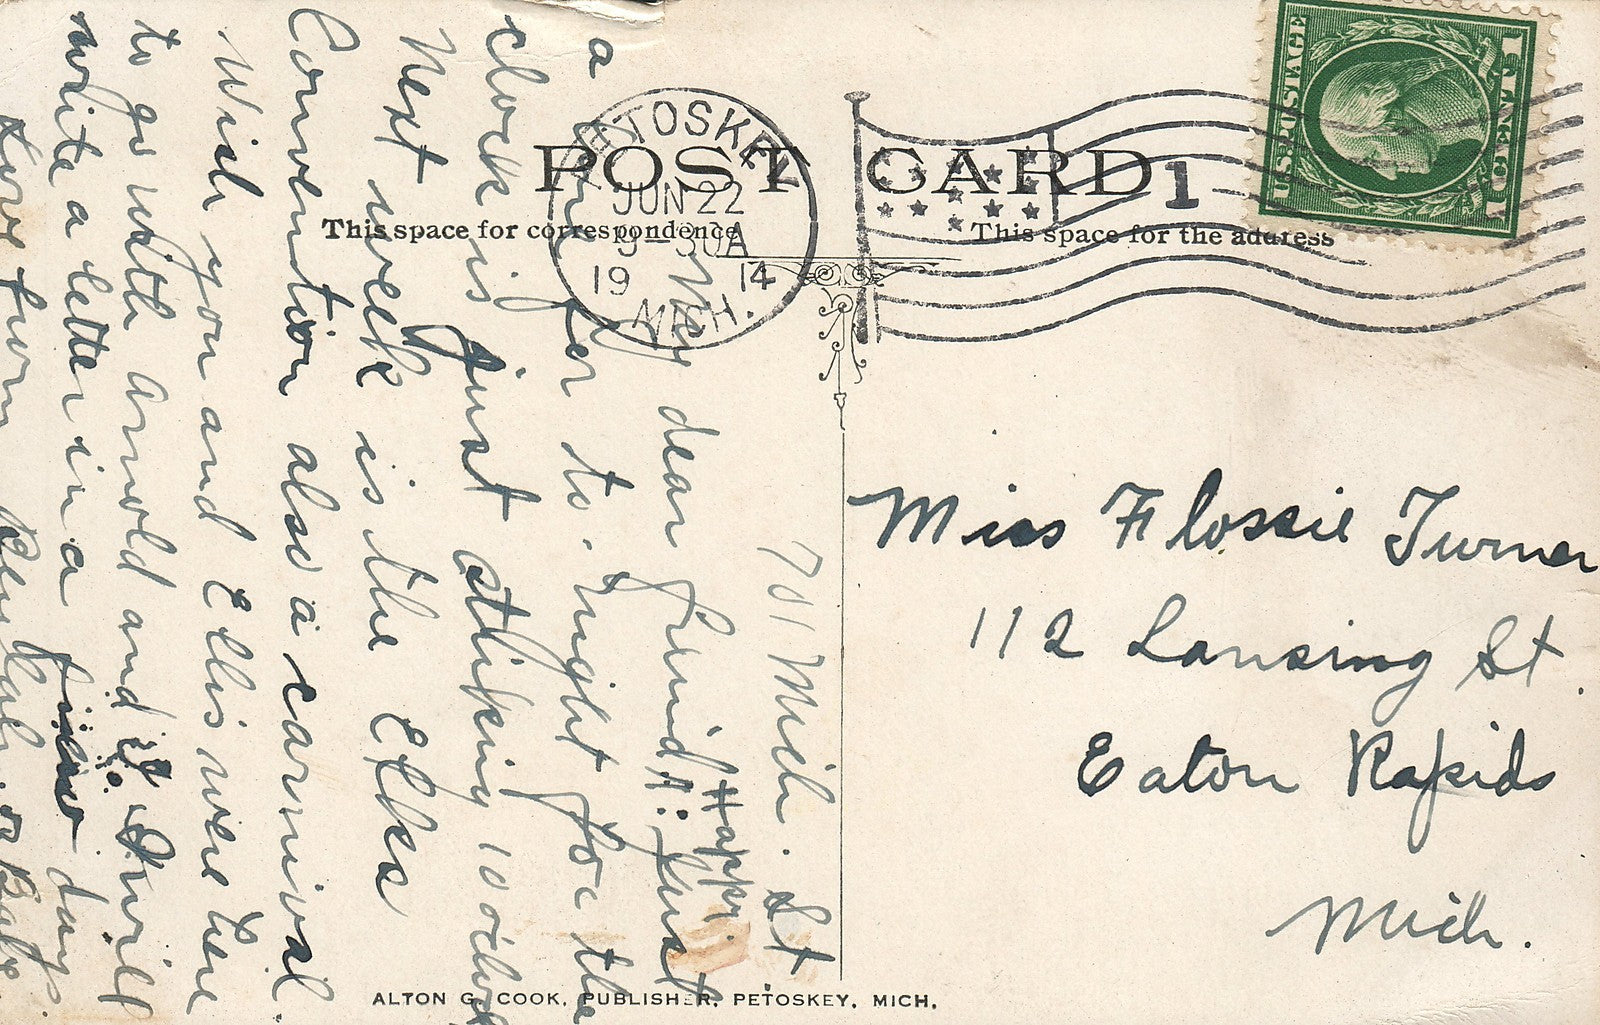 POST CARD
This space for correspondence
This space for the address
PETOSKEY
JUN 22
9-30A
19 14
MICH.
1
U.S. POSTAGE
1 CENT 1
Miss Flossie Turner
112 Lansing St.
Eaton Rapids
Mich.
701 Mich. St
My dear friend H: Just
Happy
a line for to-night for the
clock is just striking 10 oclock
Next week is the Elks
Convention also a carnival
Wish you and Ellis were here
to go with Arnold and I. I will
write a letter in a few days
Love from Beulah
ALTON G. COOK, PUBLISHER, PETOSKEY, MICH.